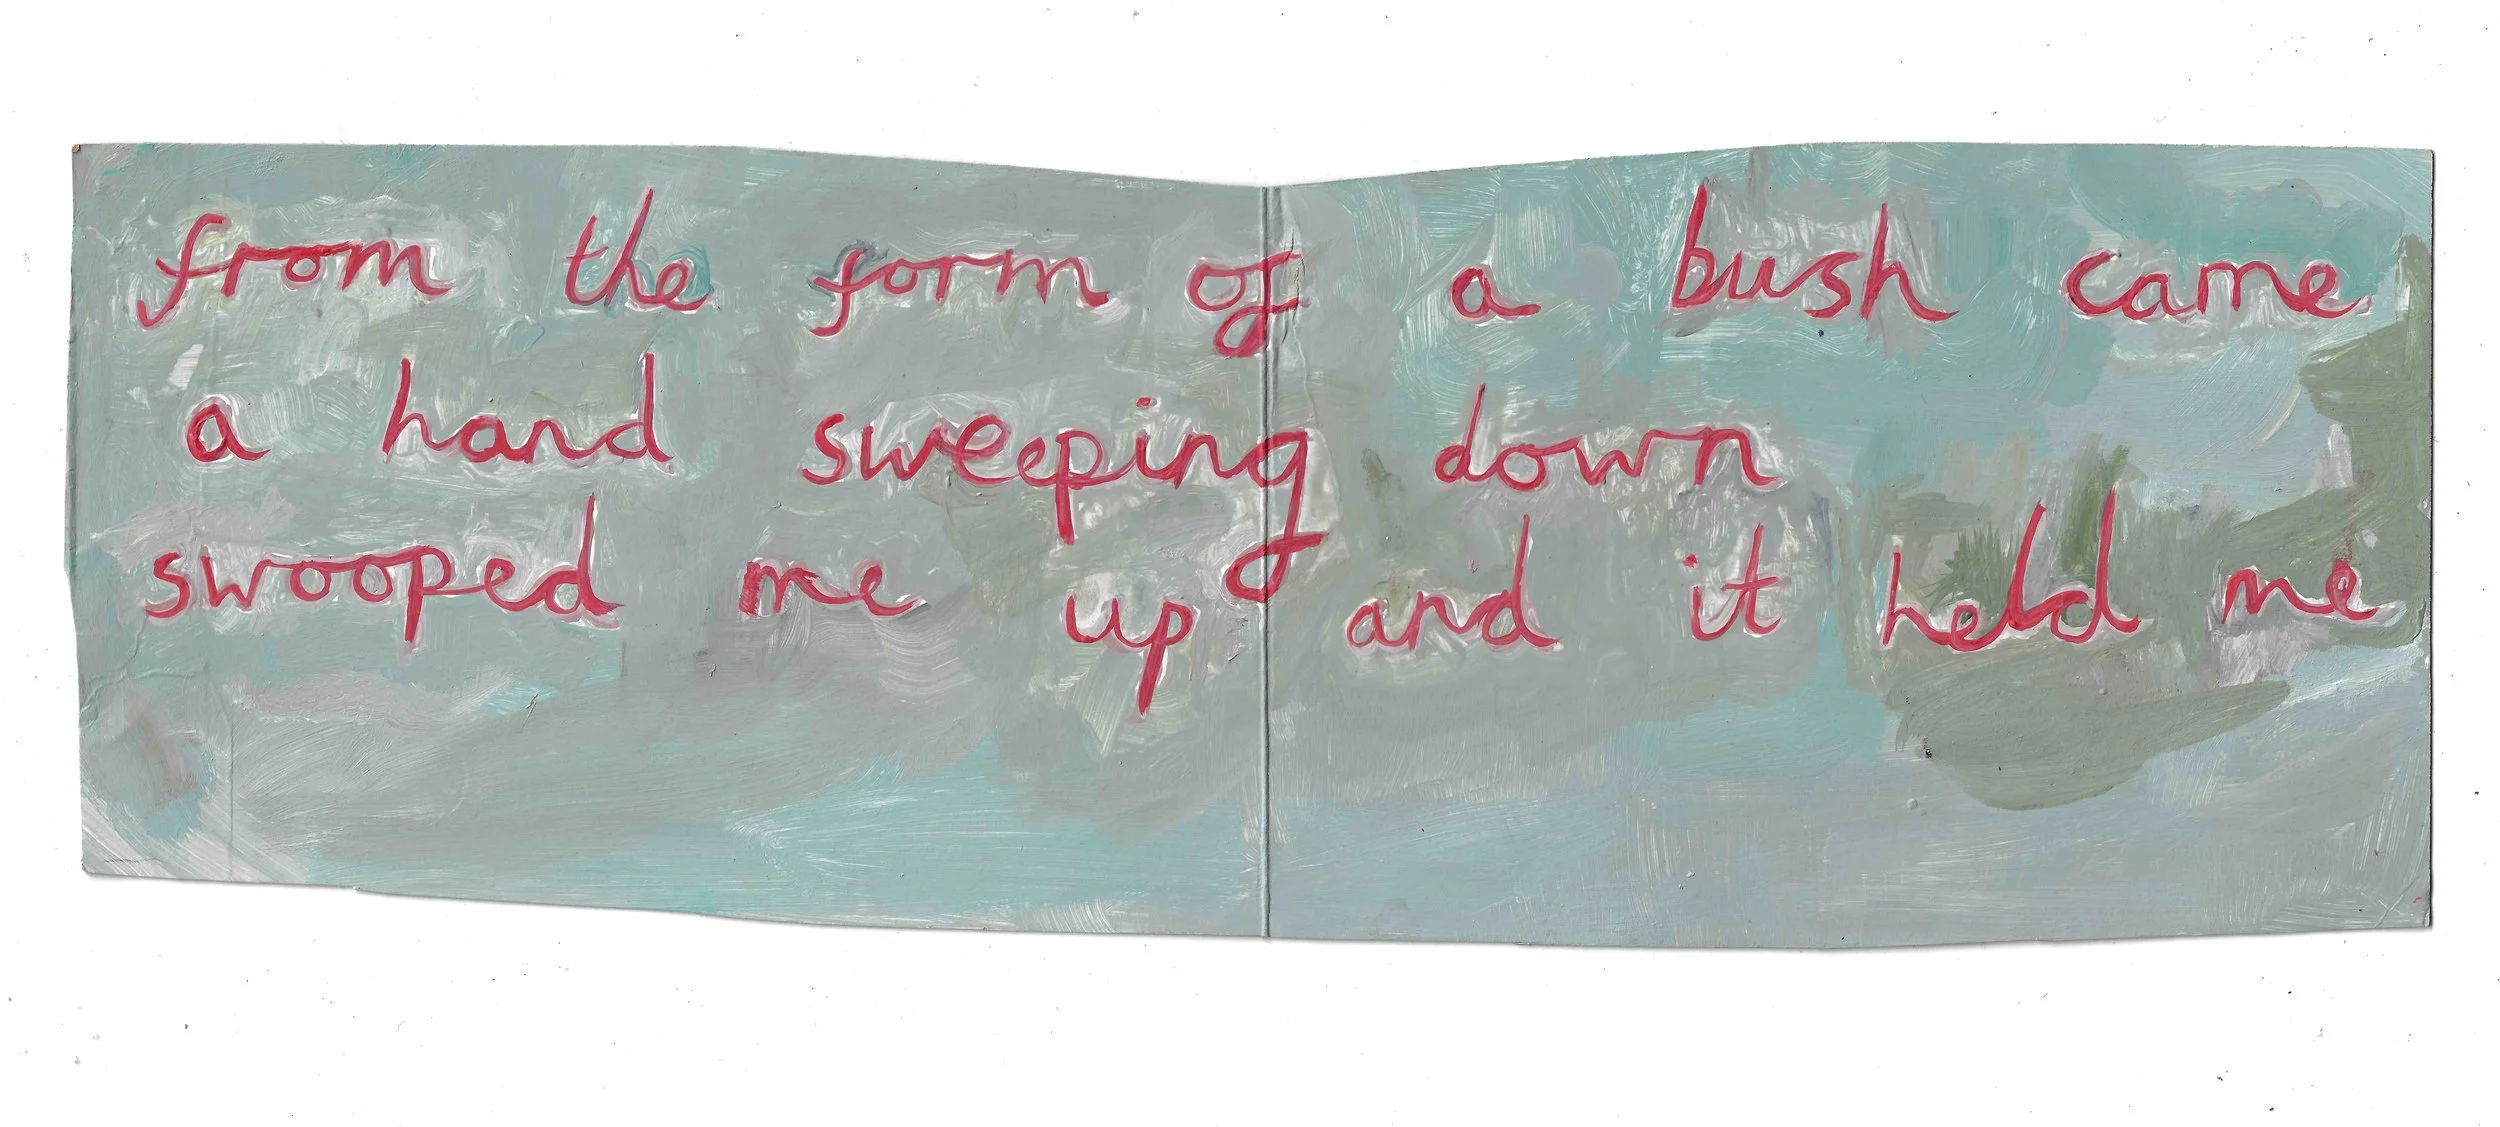 from the form of a bush came
a hand sweeping down
swooped me up and it held me